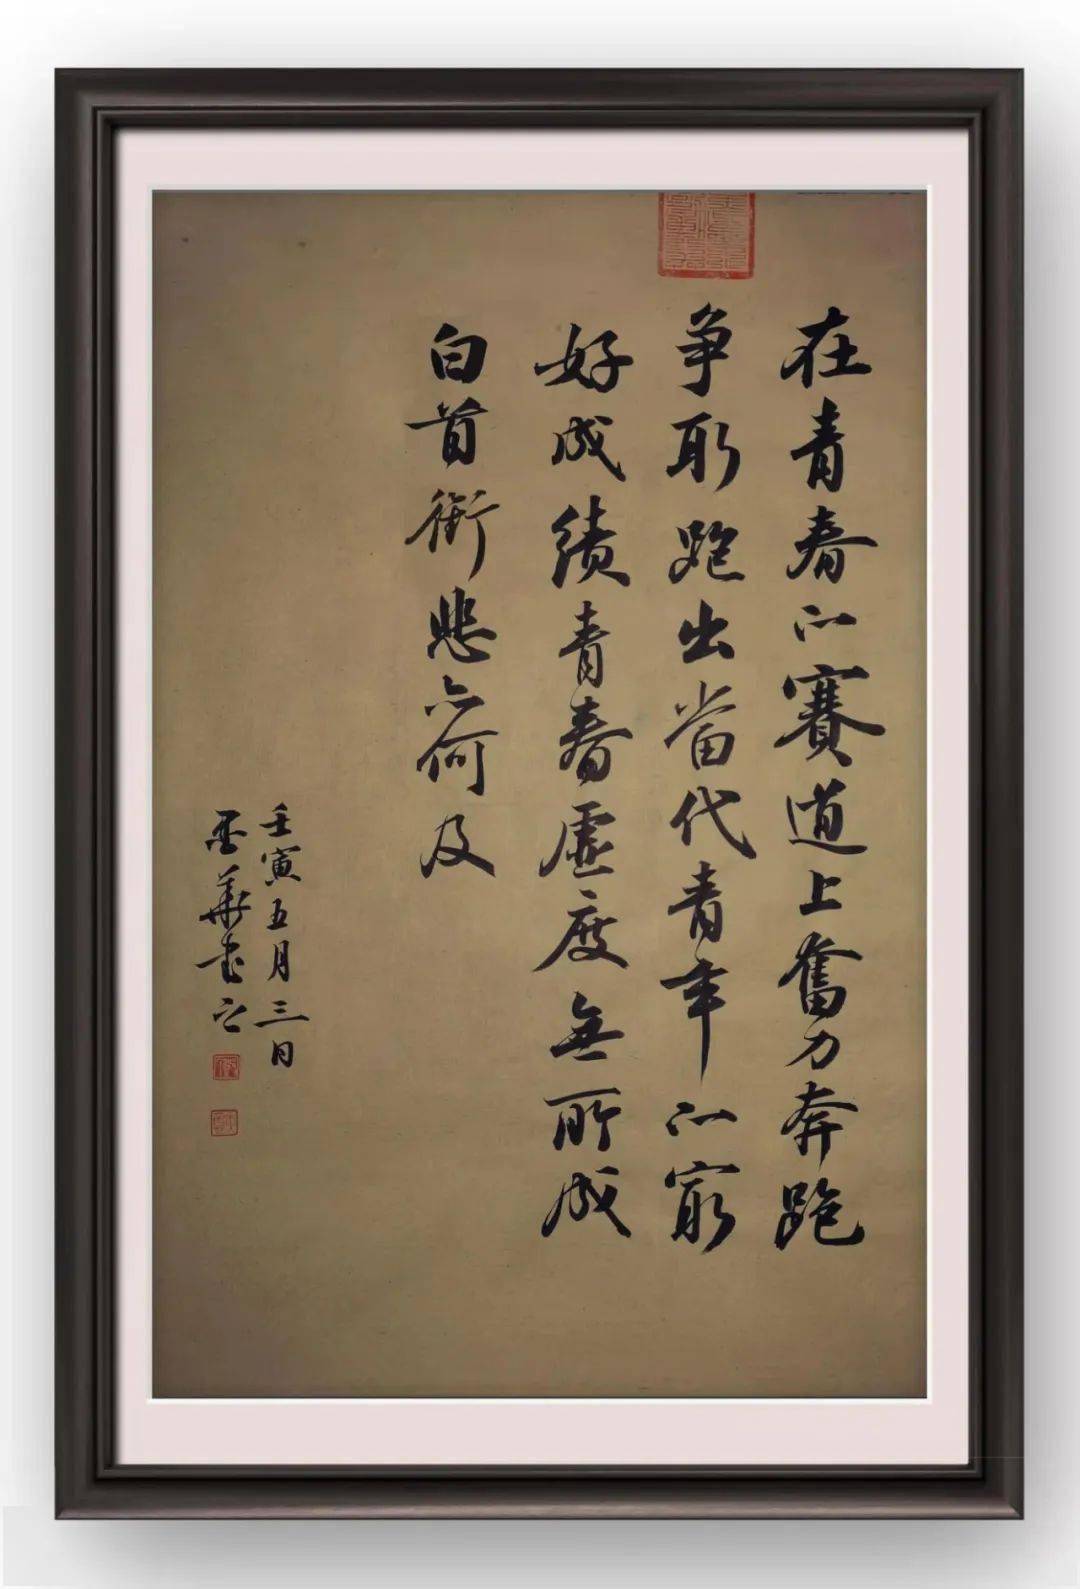 在青春的賽道上奮力奔跑
争取跑出當代青年的最
好成績青春虛度無所成
白首銜悲亦何及
壬寅五月三日
華書之